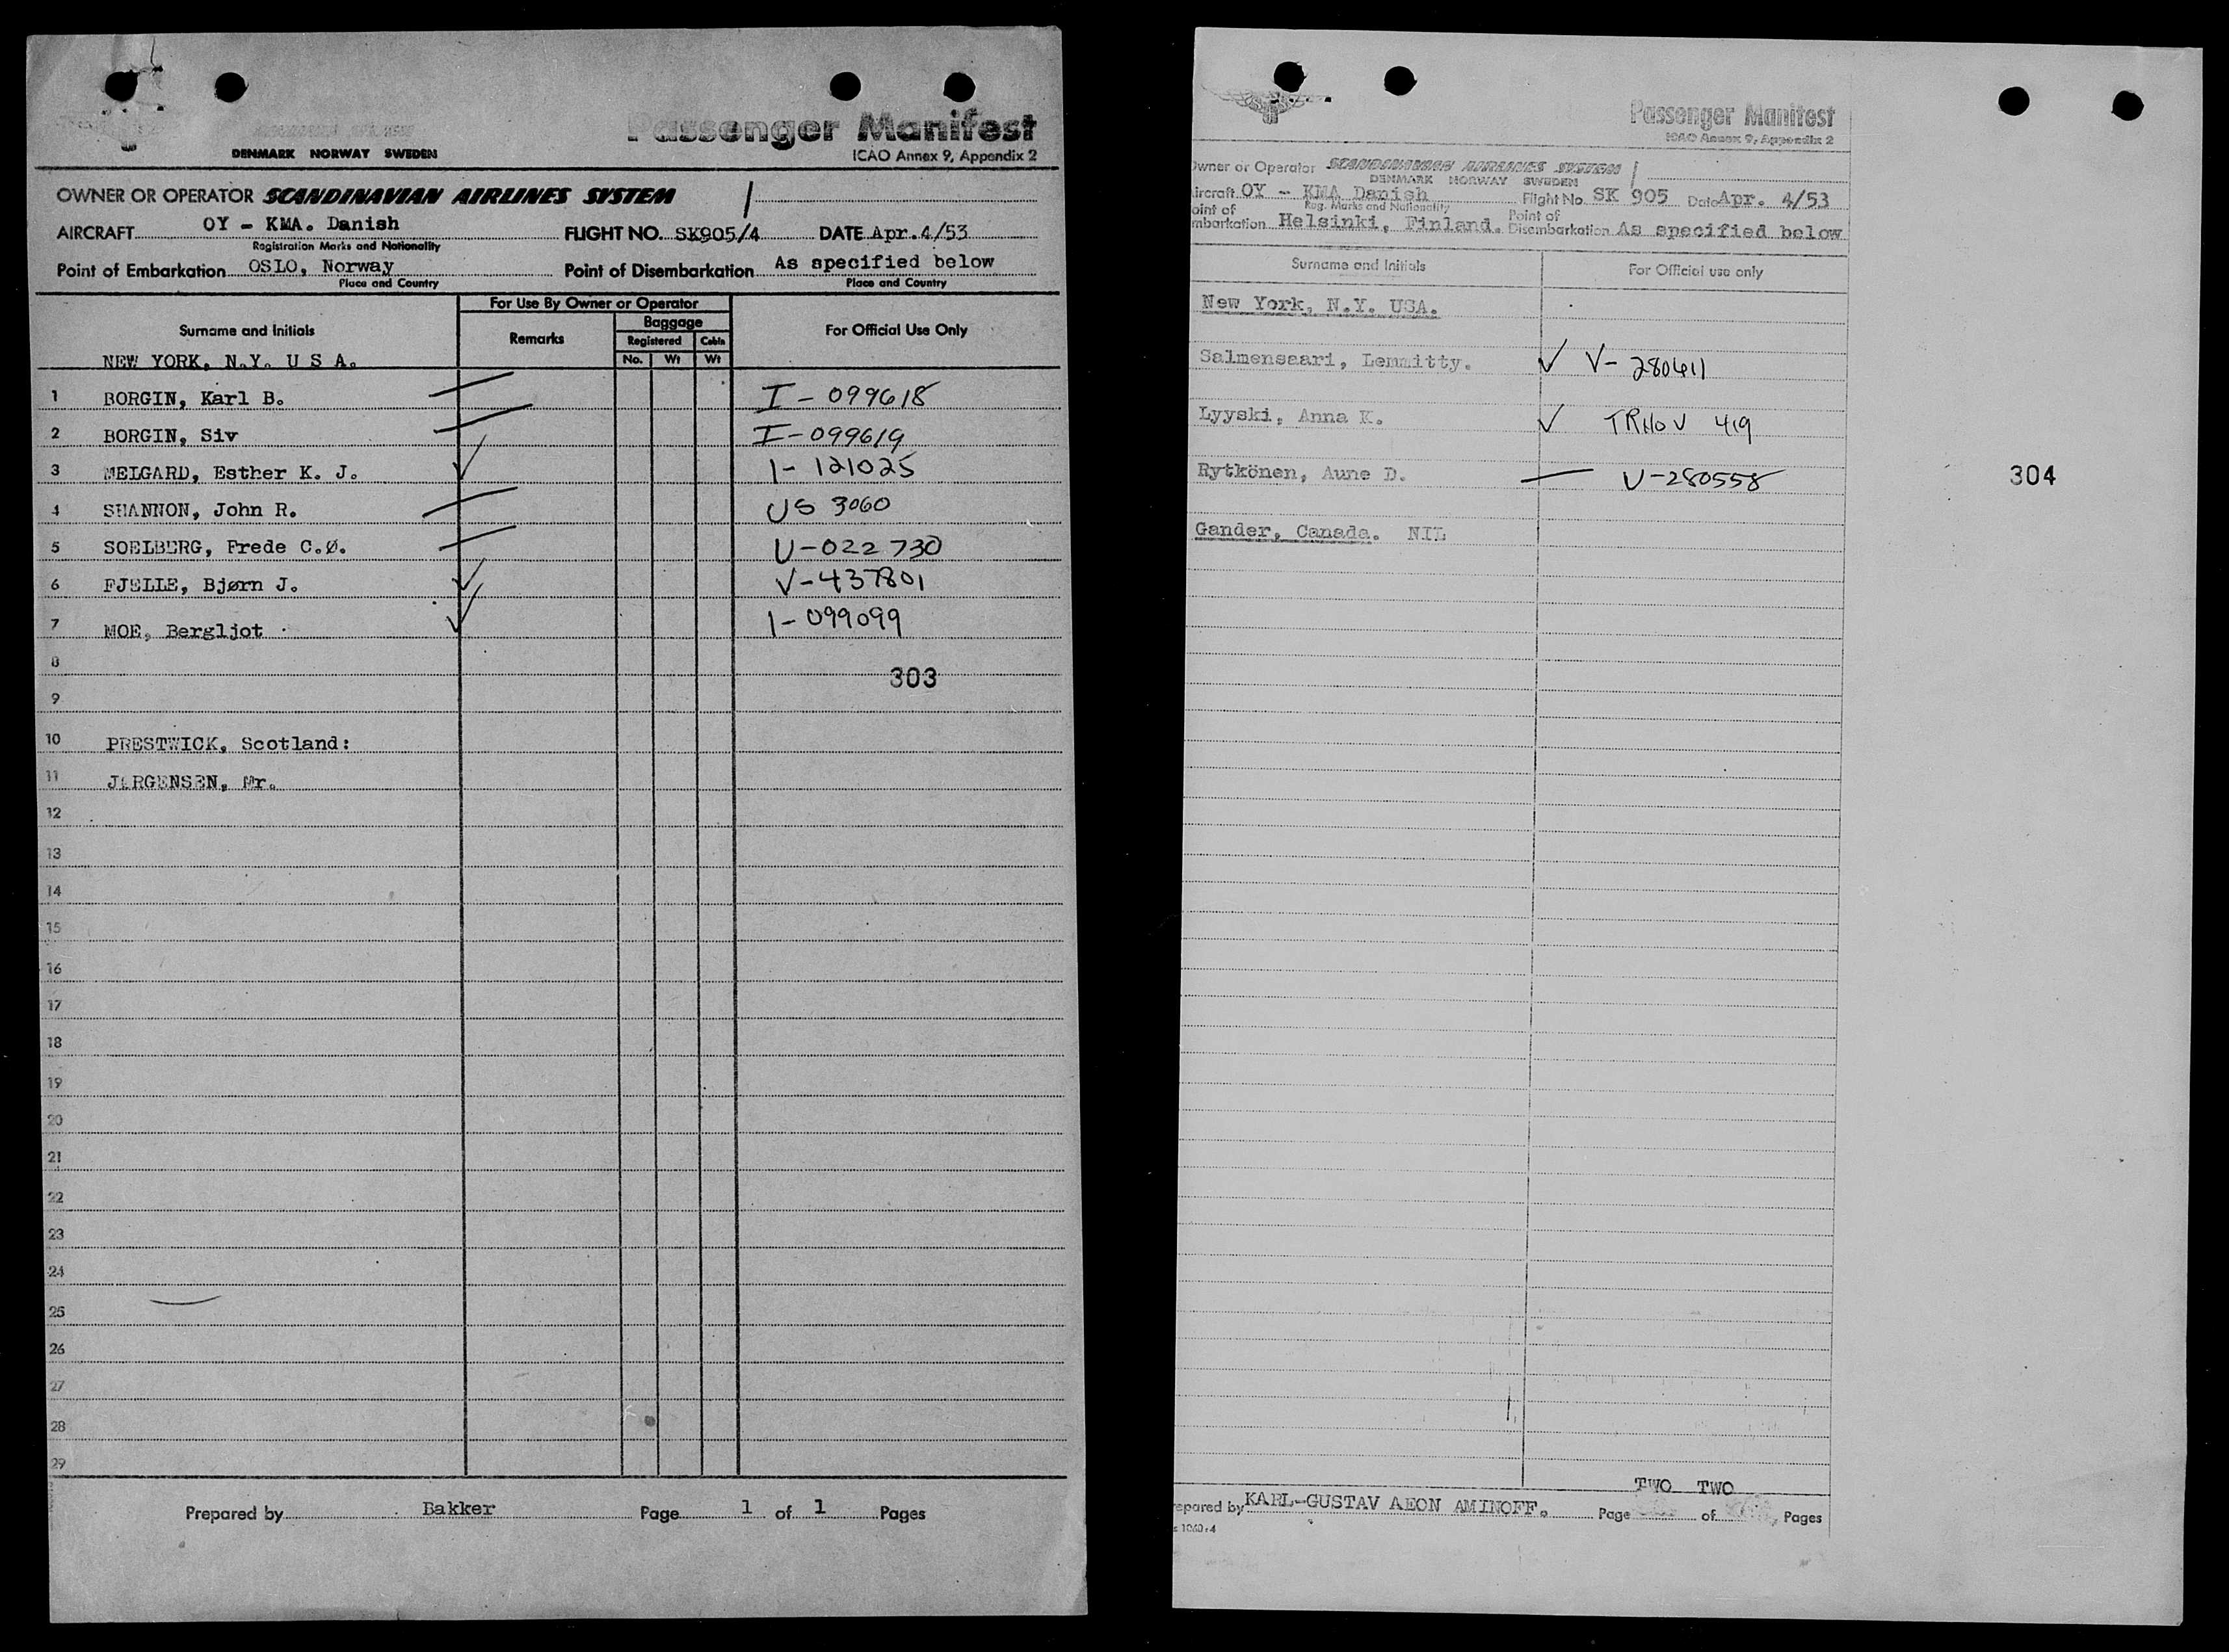 Passenger Manifest
DENMARK NORWAY SWEDEN
ICAO Annex 9, Appendix 2
OWNER OR OPERATOR SCANDINAVIAN AIRLINES SYSTEM
AIRCRAFT OY - KMA. Danish FLIGHT NO. SK905/4 DATE Apr.4/53
Registration Marks and Nationality
Point of Embarkation OSLO, Norway Point of Disembarkation As specified below
Place and Country Place and Country
For Use By Owner or Operator
Surname and Initials Remarks Baggage For Official Use Only
Registered Cabin
No. Wt Wt
NEW YORK, N.Y. U S A.
1 BORGIN, Karl B. I - 099618
2 BORGIN, Siv I-099619
3 MELGARD, Esther K. J. ✓ I- 121025
4 SHANNON, John R. US 3060
5 SOELBERG, Frede C.Ø. U-022730
6 FJELLE, Bjørn J. ✓ V-437801
7 MOE, Bergljot ✓ I-099099
8
303
9
10 PRESTWICK, Scotland:
11 JØRGENSEN, Mr.
12
13
14
15
16
17
18
19
20
21
22
23
24
25
26
27
28
29
Prepared by Bakker Page 1 of 1 Pages
Passenger Manifest
ICAO Annex 9, Appendix 2
Owner or Operator SCANDINAVIAN AIRLINES SYSTEM
DENMARK NORWAY SWEDEN
ircraft OY - KMA Danish Flight No. SK 905 Date Apr. 4/53
Reg. Marks and Nationality
oint of Point of
mbarkation Helsinki, Finland. Disembarkation As specified below
Surname and Initials For Official use only
New York, N.Y. USA.
Salmensaari, Lemmitty. ✓ V- 280411
Lyyski, Anna K. ✓ 419
Rytkönen, Aune D. — V-280558
304
Gander, Canada. NIL
TWO TWO
epared by KARL-GUSTAV AEON AMINOFF. Page of Pages
1060:4